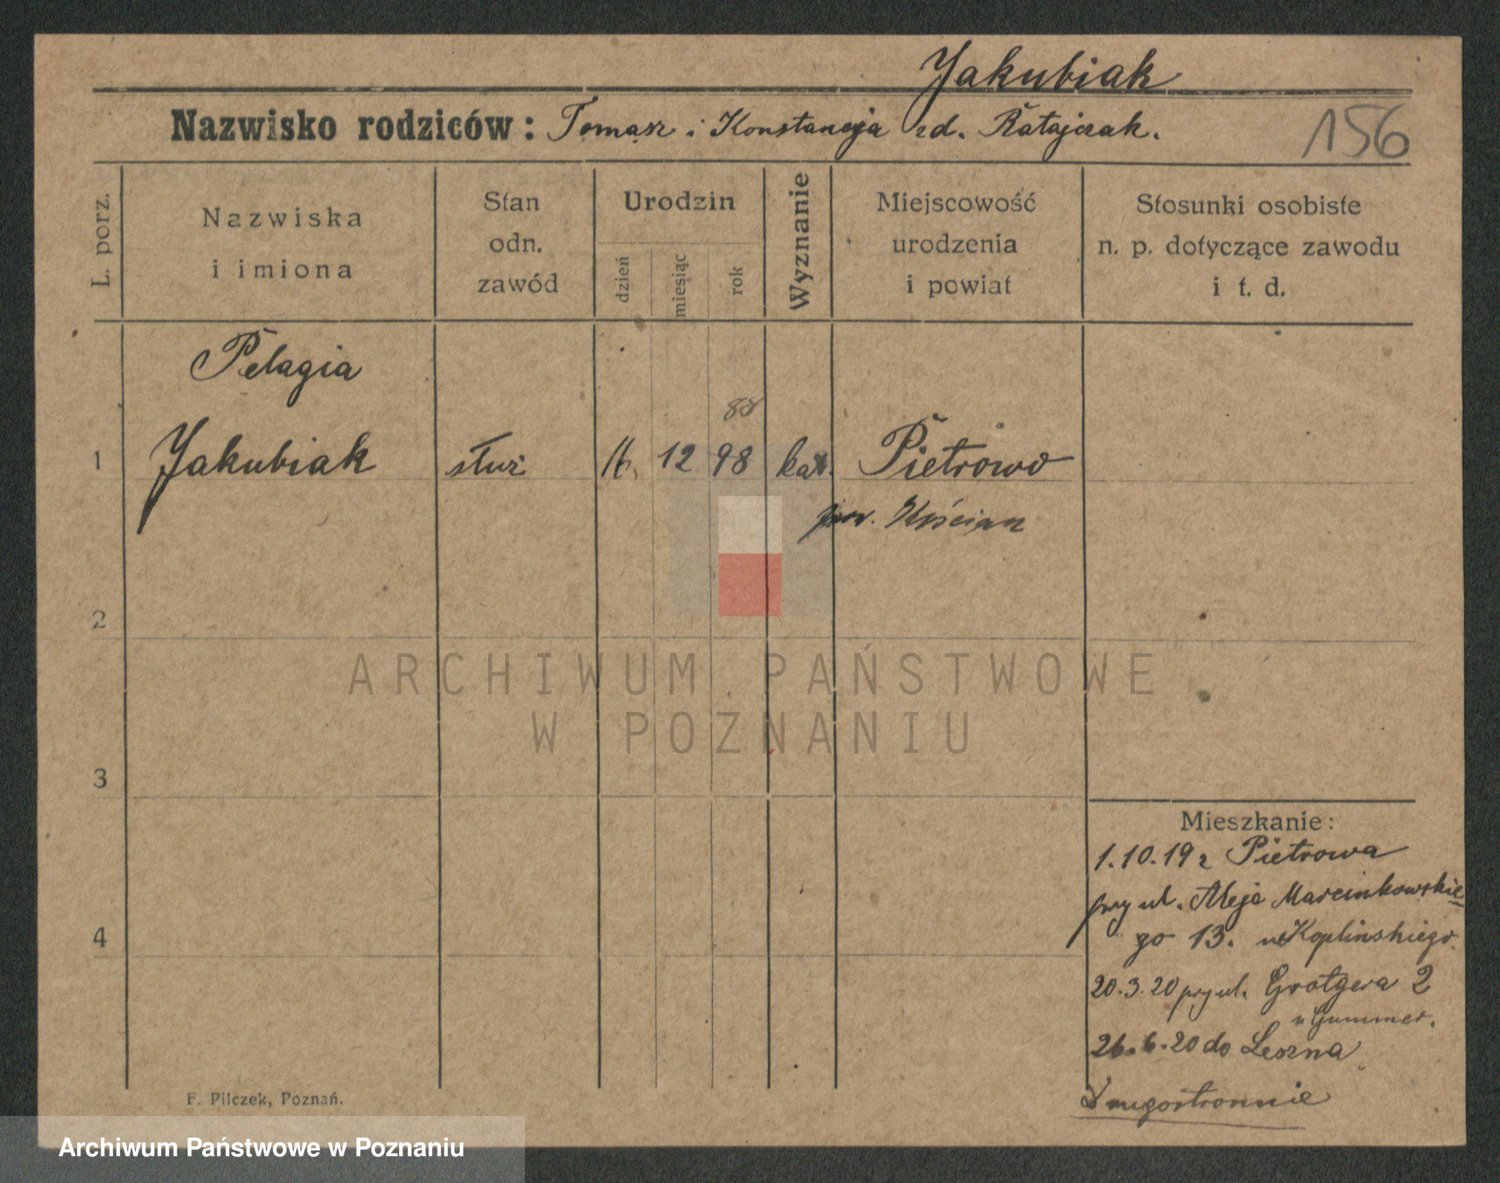 Jakubiak
Nazwisko rodziców: Tomasz i Konstancja zd. Ratajczak.
156
L. porz.
Nazwiska
i imiona
Stan
odn.
zawód
Urodzin
dzień
miesiąc
rok
Wyznanie
Miejscowość
urodzenia
i powiat
Stosunki osobiste
n. p. dotyczące zawodu
i t. d.
Pelagia
88
1 Jakubiak służ 12 98 kat. Pietrowo
pow. Kościan
2
3
4
Mieszkanie:
1.10.19 z Pietrowa
przy ul. Aleja Marcinkowskie
go 13. u Koplinskiego.
20.3.20 przy ul. Grotgera 2
u Gummer.
26.6.20 do Leszna
Drugostronnie
F. Pilczek, Poznań.
ARCHIWUM PAŃSTWOWE
W POZNANIU
Archiwum Państwowe w Poznaniu